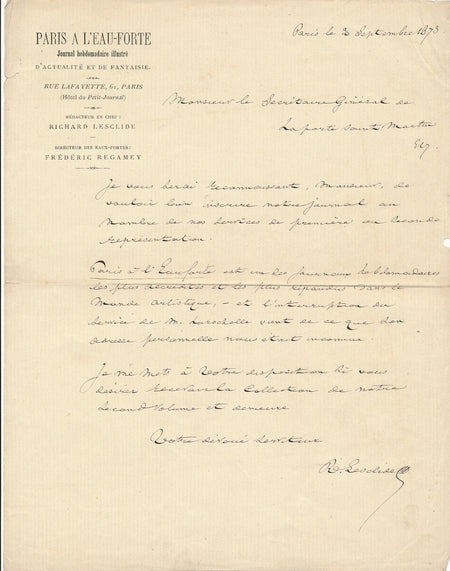 PARIS A L'EAU-FORTE
Journal hebdomadaire illustré
D'ACTUALITÉ ET DE FANTAISIE.
RUE LAFAYETTE, 61, PARIS
(Hôtel du Petit-Journal)
RÉDACTEUR EN CHEF :
RICHARD LESCLIDE
DIRECTEUR DES EAUX-FORTES :
FRÉDÉRIC REGAMEY
Paris le 3 Septembre 1873
Monsieur le Secrétaire Général de
La porte Saint Martin
Je vous serai reconnaissant, Monsieur, de
vouloir bien inscrire notre journal au
Nombre de nos services de première ou seconde
représentation.
Paris à l'Eau forte est un des journaux hebdomadaires
les plus accrédités et les plus répandus dans le
Monde artistique, - et l'interruption du
Service de M. Larochelle vient de ce que son
adresse personnelle nous était inconnue.
Je me mets à Votre disposition si vous
désirez la Collection de notre
second Volume et demeure
Votre dévoué serviteur
R. Lesclide